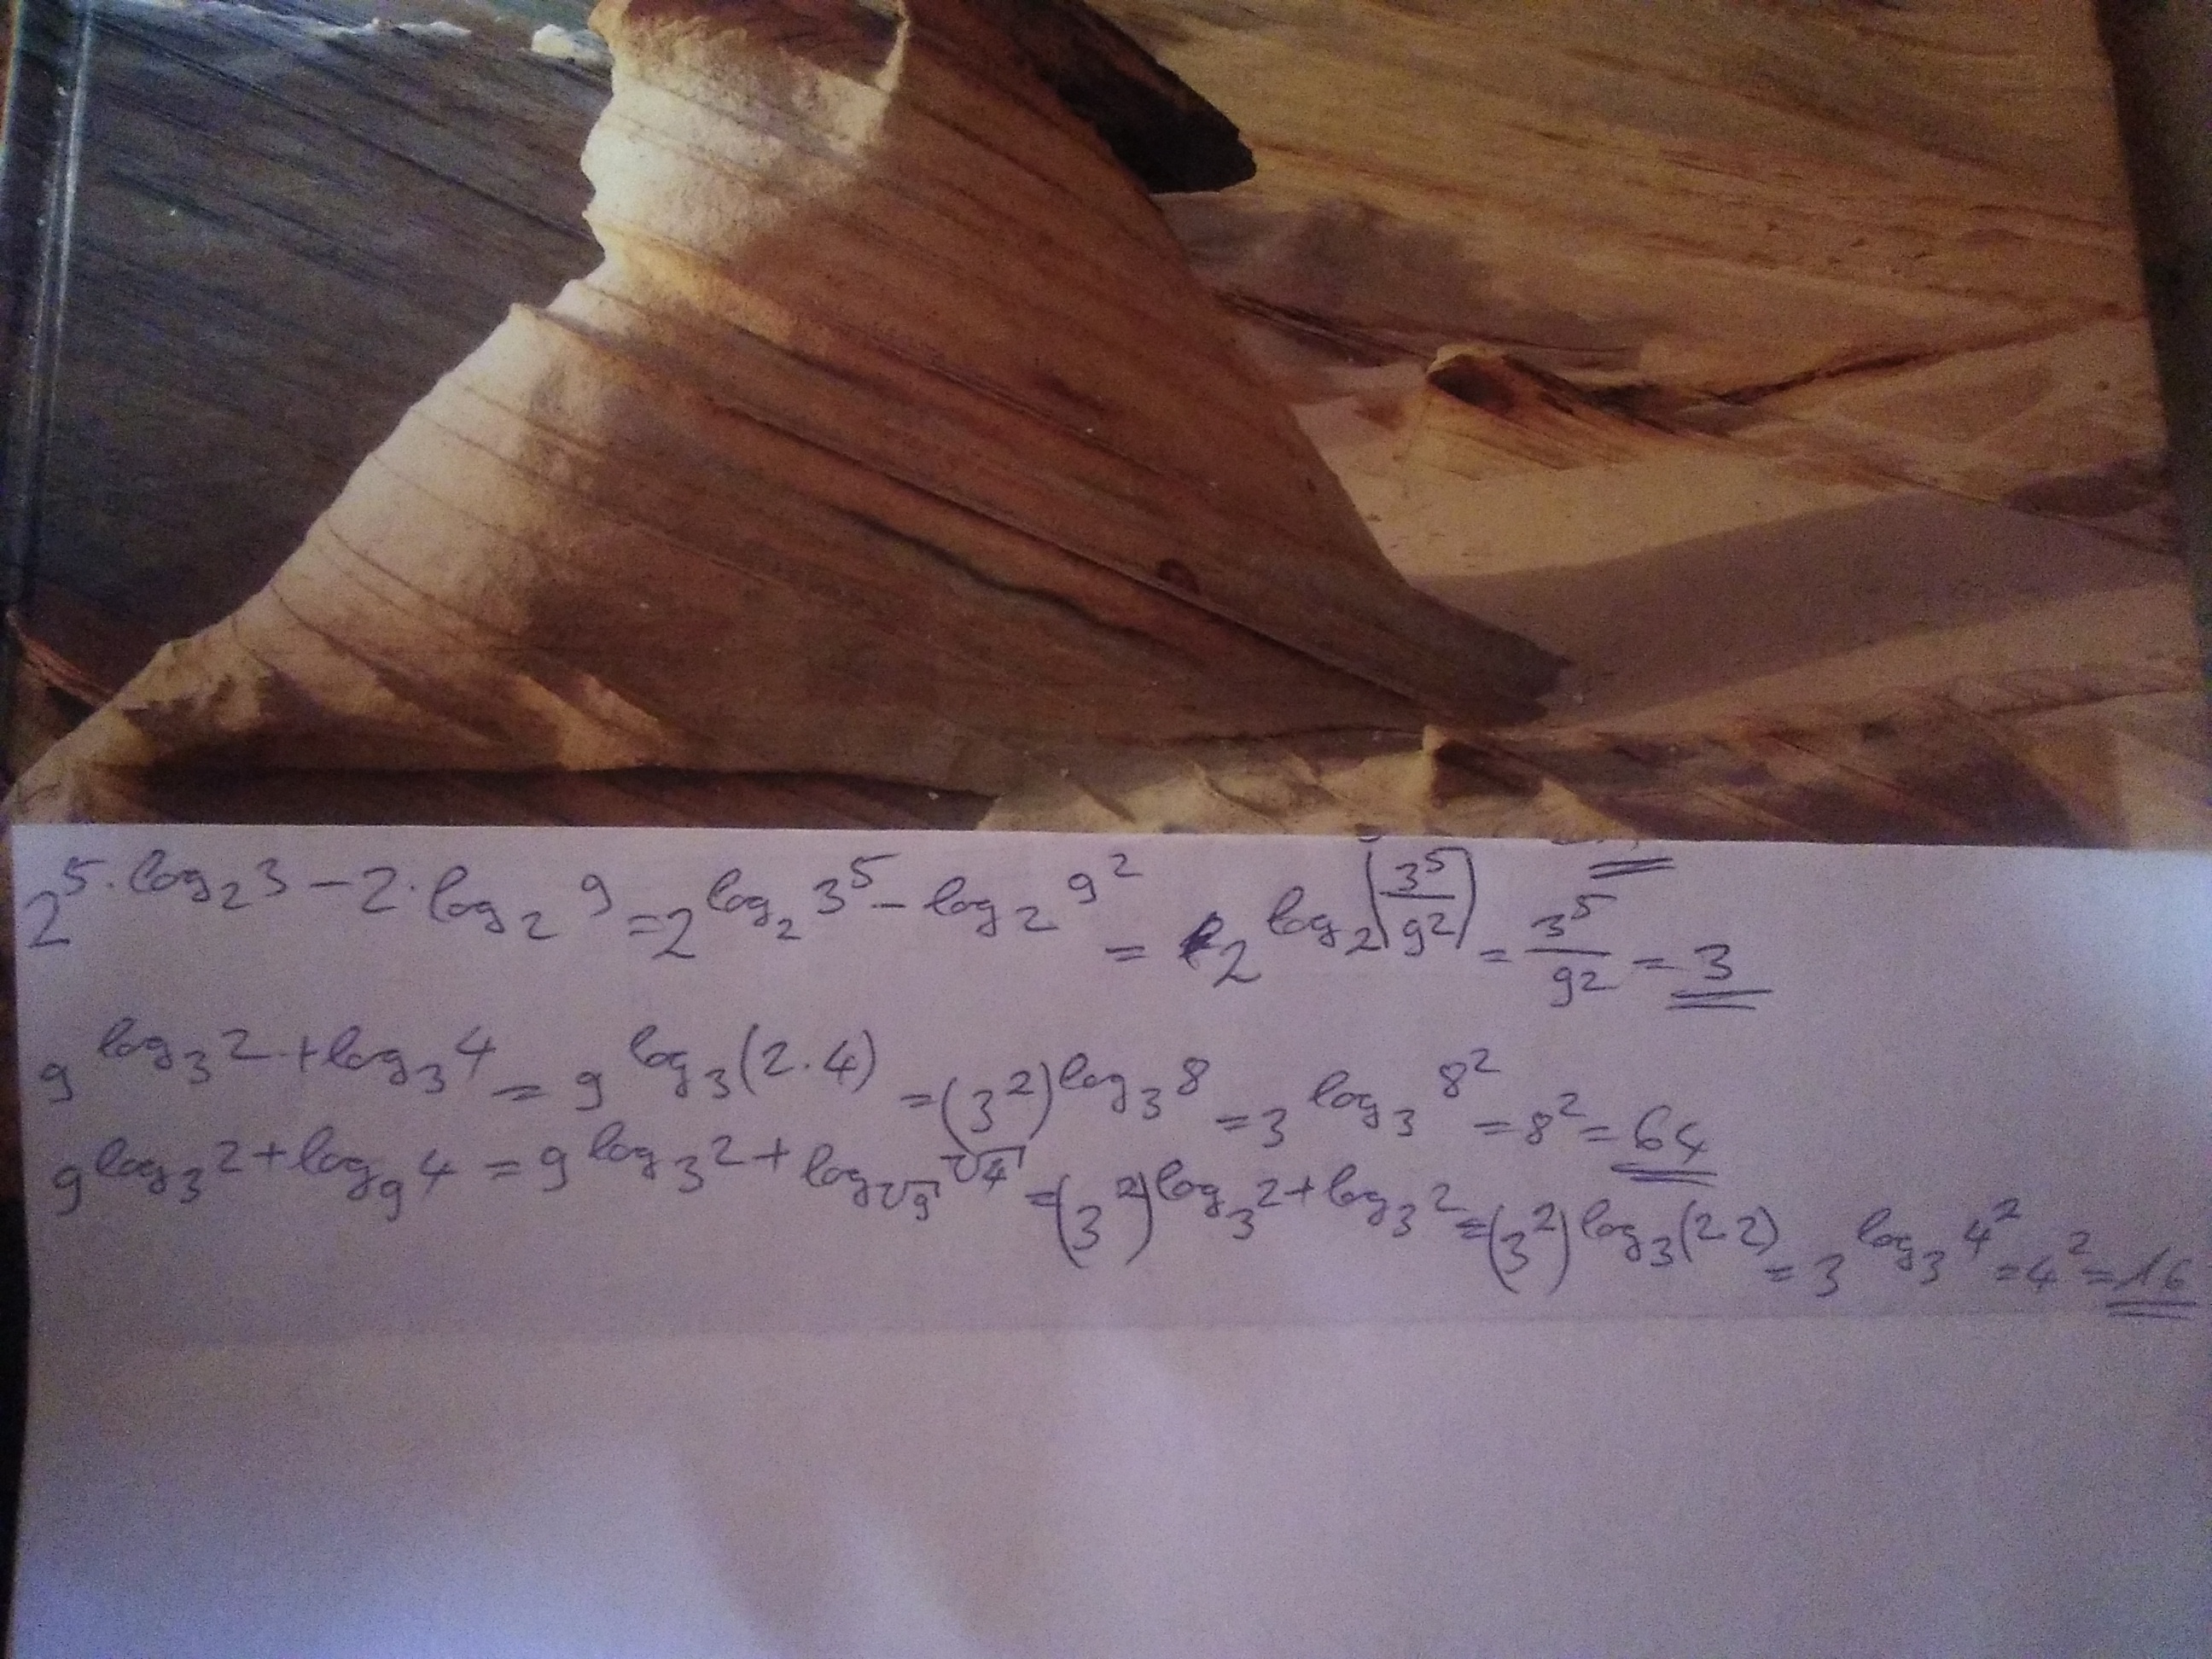 2^(5·log₂3 − 2·log₂9) = 2^(log₂3⁵ − log₂9²) = 2^(log₂(3⁵/9²)) = 3⁵/9² = 3
9^(log₃2 + log₃4) = 9^(log₃(2·4)) = (3²)^(log₃8) = 3^(log₃8²) = 8² = 64
9^(log₃2 + log₉4) = 9^(log₃2 + log_√9 √4) = (3²)^(log₃2 + log₃2) = (3²)^(log₃(2·2)) = 3^(log₃4²) = 4² = 16